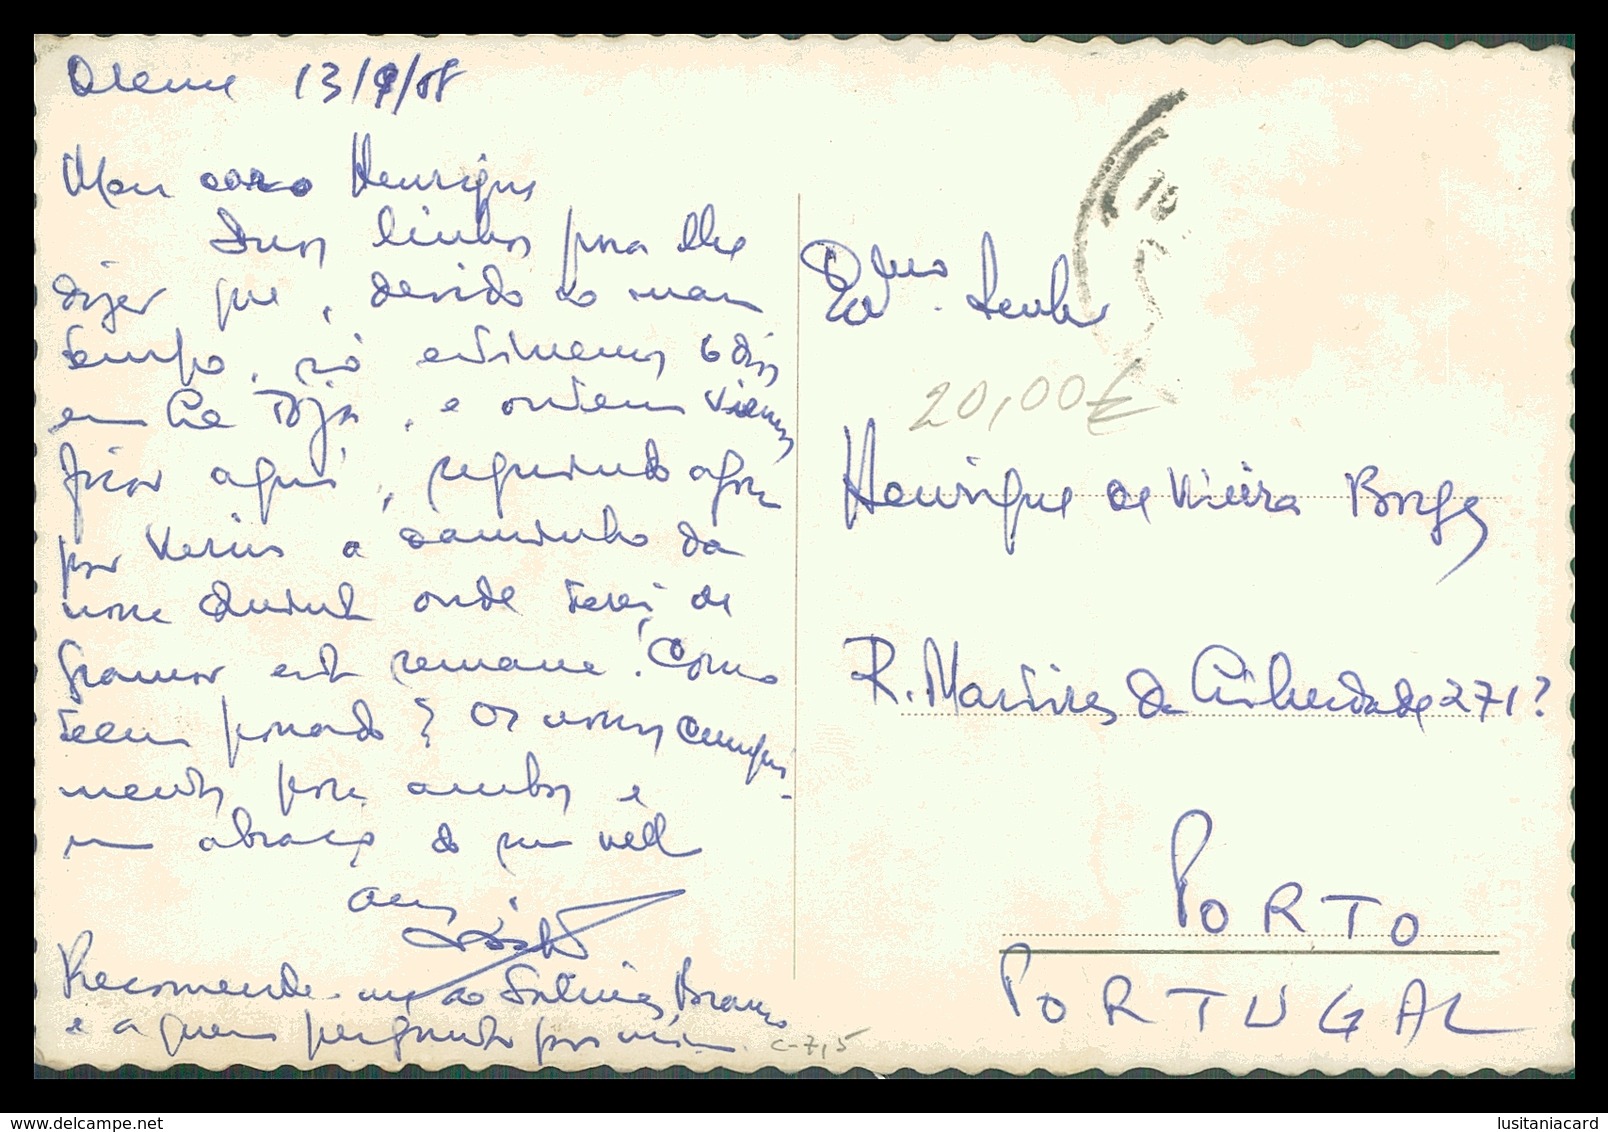 Orense 13/9/68
Meu caro Henrique
Duas linhas para lhe
dizer que, devido ao mau
tempo, só estivemos 6 dias
em La Toja, e ontem viemos
ficar aqui, seguindo agora
por Verin a caminho da
nossa Quinta onde terei de
gramar esta semana. Como
teem passado? Os nossos cumpri-
mentos para ambos e
um abraço do seu velho
amigo
Recomende-me ao Saltires Branco
e a quem perguntar por mim. c-7,5
Exmo. Senhor
20,00€
Henrique de Vieira Borges
R. Martires da Liberdade 271?
PORTO
PORTUGAL
©delcampe.net
lusitaniacard